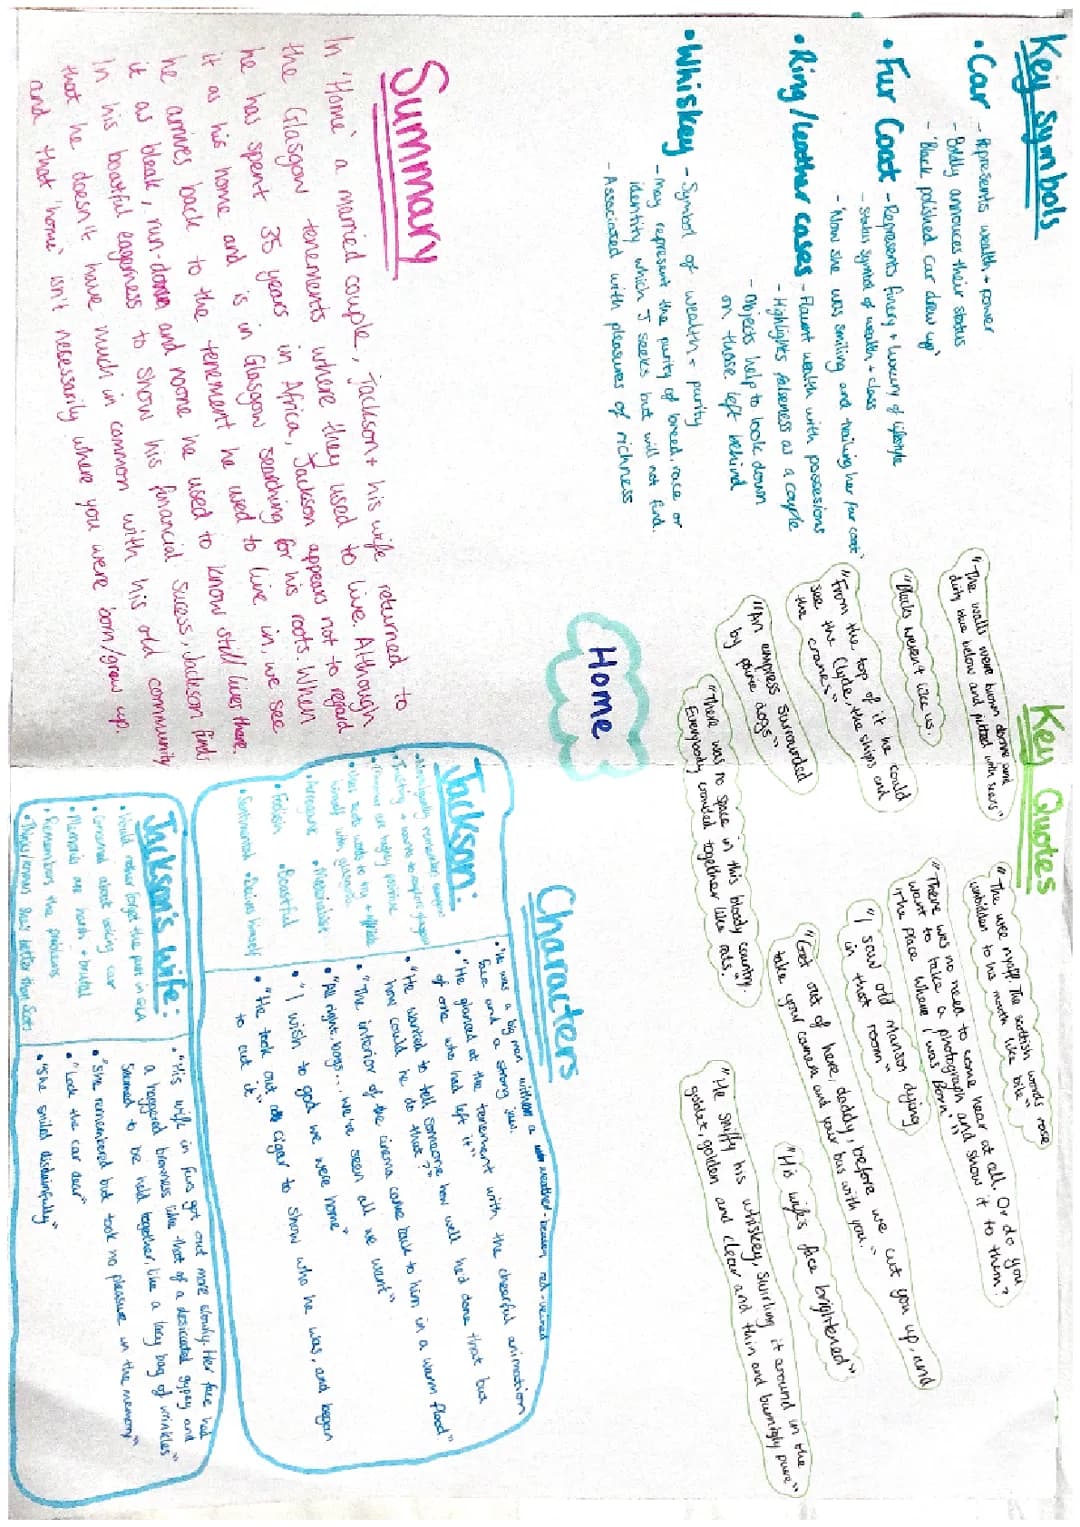 Key Symbols
• Car - Represents wealth + power
- Boldly annouces their status
- 'Black polished car drew up'
• Fur Coat - Represents finery + luxury of lifestyle
- status symbol of wealth + class
- 'Now she was smiling and trailing her fur coat'
• Ring/Leather cases - Flaunt wealth with possesions
- Highlights falseness as a couple
- Objects help to look down
on those left behind
• Whiskey - Symbol of wealth + purity
- may represent the purity of breed, race or
identity which J seeks but will not find.
- Associated with pleasures of richness
Summary
In 'Home' a married couple, Jackson + his wife returned to
the Glasgow tenements where they used to live. Although
he has spent 35 years in Africa, Jackson appears not to regard
it as his home and is in Glasgow searching for his roots. When
he arrives back to the tenement he used to live in, we see
it as bleak, run-down and noone he used to know still lives there.
In his boastful eagerness to show his financial sucess, Jackson finds
that he doesn't have much in common with his old community
and that 'home' isn't necessarily where you were born/grew up.
Home
Key Quotes
"The walls were brown above and
dirty blue below and pitted with scars"
"Blacks weren't like us.
"From the top of it he could
see the Clyde, the ships and
the cranes"
"An empress surrounded
by prairie dogs"
"There was no space in this bloody country.
Everybody crowded together like rats."
"The wee nyaff. The scottish words rose
unbidden to his mouth like bile"
"There was no need to come hear at all. Or do you
want to take a photograph and show it to them?
'The place where I was Born'"
"I saw old manson dying
in that room"
"Get out of here, daddy, before we cut you up, and
take your camera and your bus with you."
"His wife's face brightened"
"He sniffy his whiskey, swirling it around in the
goblet, golden and clear and thin and burnigly pure"
Characters
Jackson:
• Nostalgically remembers
• Memories are highly positive
himself with glasgow
• Arrogant • Materialistic
• Foolish • Boastful
• Sentimental • Deludes himself
• "He was a big man with a weather-beaten red-veined
face and a strong jaw.
• "He glanced at the tenement with the cheerful animation
of one who had left it"
• "He wanted to tell someone how well he'd done that but
how could he do that?"
• "The interior of the cinema came back to him in a warm flood"
• "All right, boys... we've seen all we want"
• "I wish to god we were home"
• "He took out a cigar to show who he was, and began
to cut it"
Jackson's wife:
• Would rather forget the past in GLA
• Concerned about locking car
• Memories are harsh + brutal
• Remembers the problems
• "His wife in furs got out more slowly. Her face had
a haggered brownness like that of a desiccated gypsy and
seemed to be held together, like a lacy bag of wrinkles"
• "She remembered but took no pleasure in the memory"
• "Lock the car dear"
• "She smiled disdainfully"